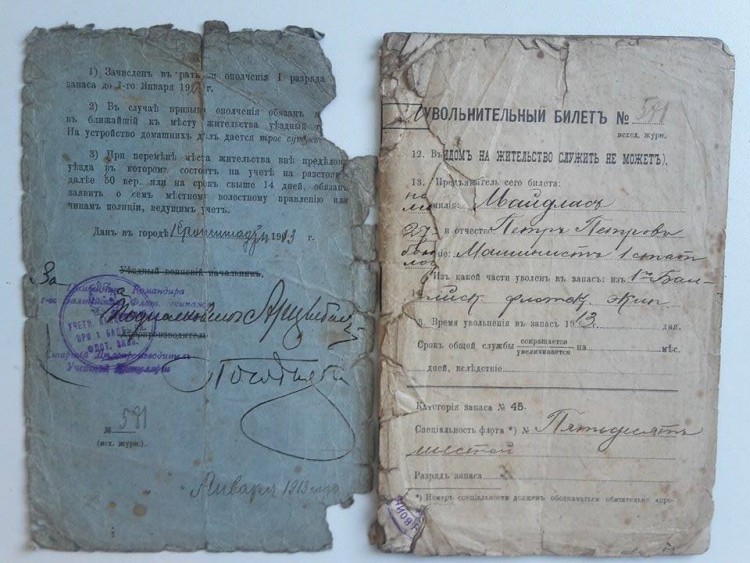 1) Зачисленъ въ рат и ополченія I разряда
запаса до 1-го Января 19 г.
2) Въ случаѣ призыва ополченія обязан
въ ближайшій къ мѣсту жительства уѣздный г
На устройство домашнихъ дѣлъ дается трое суто
3) При перемѣнѣ мѣста жительства внѣ предѣло
уѣзда въ которомъ состоитъ на учетѣ на разстоя
далѣе 50 вер. или на срокъ свыше 14 дней, обязан
заявить о семъ мѣстному волостному правленію или
чинамъ полиціи, ведущимъ учетъ.
Данъ въ городѣ Кронштадтѣ 1913 г.
Уѣздный воинскій начальникъ,
За
Командира
УЧЕТН.
ПРИ 1 БАЛТ
ФЛОТ. ЭКИП.
Дѣлопроизводитель
Старшій Дѣлопроизводитель
Учебной Канцеляріи
№ 591
(исх. журн.)
Января 1913 года
УВОЛЬНИТЕЛЬНЫЙ БИЛЕТЪ № 591
исход. журн.
12. ВИДОМЪ НА ЖИТЕЛЬСТВО СЛУЖИТЬ НЕ МОЖЕТЪ).
13. Предъявитель сего билета:
милія: Майдлисъ
и отчество: Петръ Петровъ
іе: Машинистъ 1 стат
Изъ какой части уволенъ въ запасъ: изъ 1го Бал-
тійск флотск. Экип
Время увольненія въ запасъ 1913. дня.
Срокъ общей службы сокращается увеличивается на мѣс.
дней, вслѣдствіе
Категорія запаса № 45.
Спеціальность флота *) № Пятьдесятъ
шестой
Разрядъ запаса
*) Номеръ спеціальности долженъ обозначаться обязательно про-